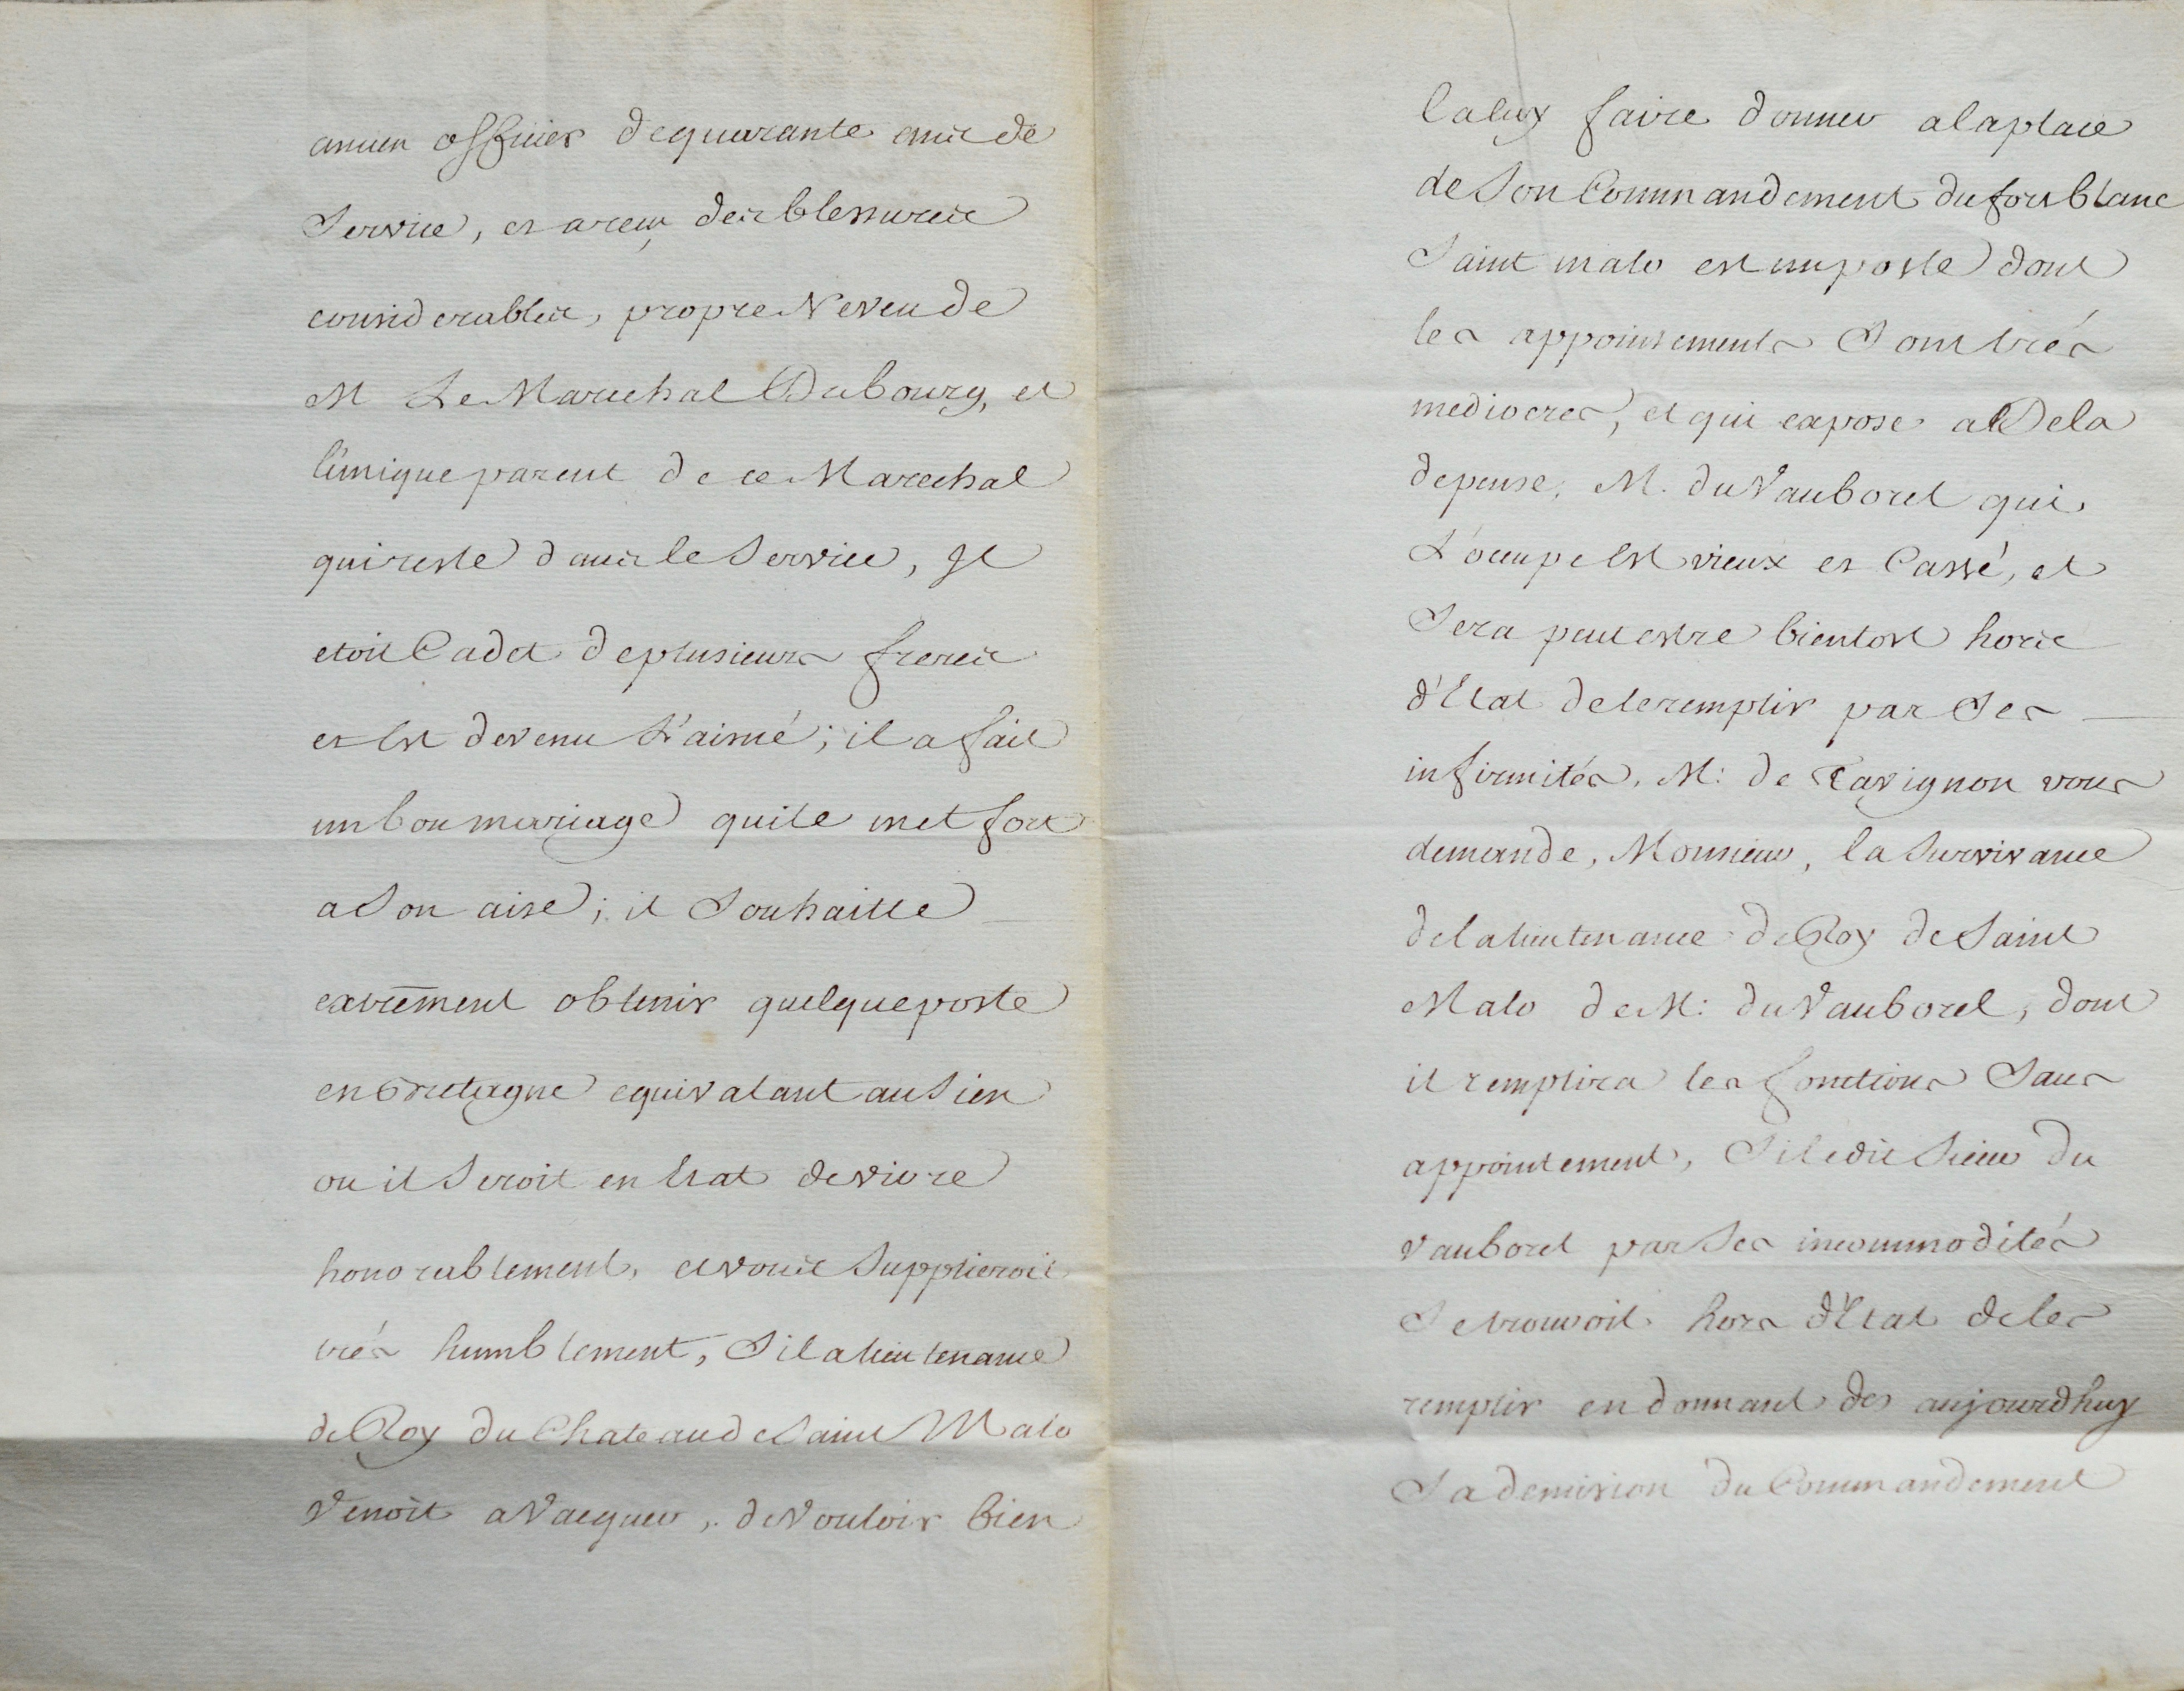 ancien officier de quarante ans de
Service, et a reçu des blessures
considerables, propre Neveu de
M Le Marechal Du bourg, et
l'unique parent de ce Marechal
qui reste dans le Service, Il
etoit Cadet de plusieurs freres
et Est devenu L'ainé; il a fait
un bon mariage qui le met fort
a Son aise; il Souhaitte
extrement obtenir quelque poste
en Bretagne equivalant au Sien
ou il Seroit en Etat de vivre
honorablement, et vous Supplieroit
trés humblement, Si la lieutenance
de Roy du Chateau de Saint Malo
Venoit a Vacquer, de Vouloir bien
la luy faire donner a la place
de Son Commandement du fort blanc
Saint malo est un poste dont
les appointements Sont trés
mediocres, et qui expose a De la
depense, M. du Vauborel qui
L'occupe Est vieux et Cassé, et
Sera peut estre bientost hors
d'Etat de le remplir par Ses
infirmités, M: de Tavignon vous
demande, Monsieur, la Survivance
de la lieutenance de Roy de Saint
Malo de M: du Vauborel, dont
il remplira les fonctions Sans
appointement, Si le dit Sieur du
Vauborel par Ses incommodités
Se trouvoit hors d'Etat de les
remplir en donnant des aujourdhuy
Sa demission du Commandement